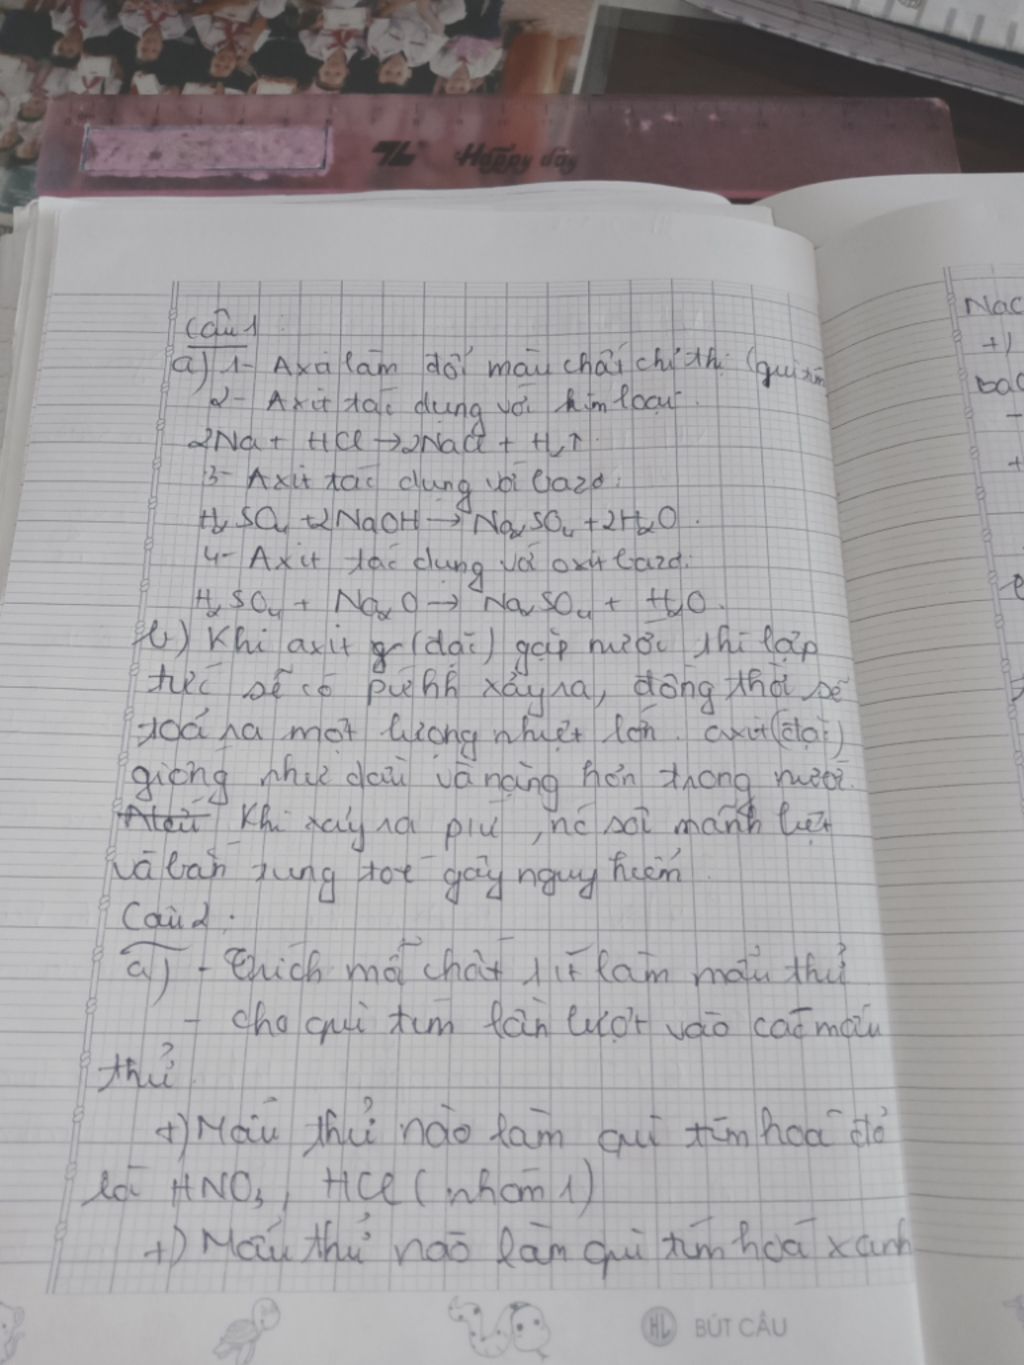 Happy day
Câu 1
a) 1- Axit làm đổi màu chất chỉ thị (quì tím
2- Axit tác dụng với kim loại.
2Na + HCl → 2NaCl + H₂↑.
3- Axit tác dụng với bazơ.
H₂SO₄ + 2NaOH → Na₂SO₄ + 2H₂O.
4- Axit tác dụng với oxit bazơ.
H₂SO₄ + Na₂O → Na₂SO₄ + H₂O.
b) Khi axit (đặc) gặp nước thì lập
tức sẽ có pứhh xảy ra, đồng thời sẽ
toả ra một lượng nhiệt lớn. axit (đặc)
giống như dầu và nặng hơn trong nước.
Khi xảy ra pứ, nó sôi mãnh liệt
và bắn tung toé gây nguy hiểm.
Câu 2.
a) - Trích mỗi chất 1 ít làm mẫu thử
- cho quì tím lần lượt vào các mẫu
thử.
+) Mẫu thử nào làm quì tím hoá đỏ
là HNO₃, HCl (nhóm 1)
+) Mẫu thử nào làm quì tím hoá xanh
HL BÚT CÂU
+)
-
+